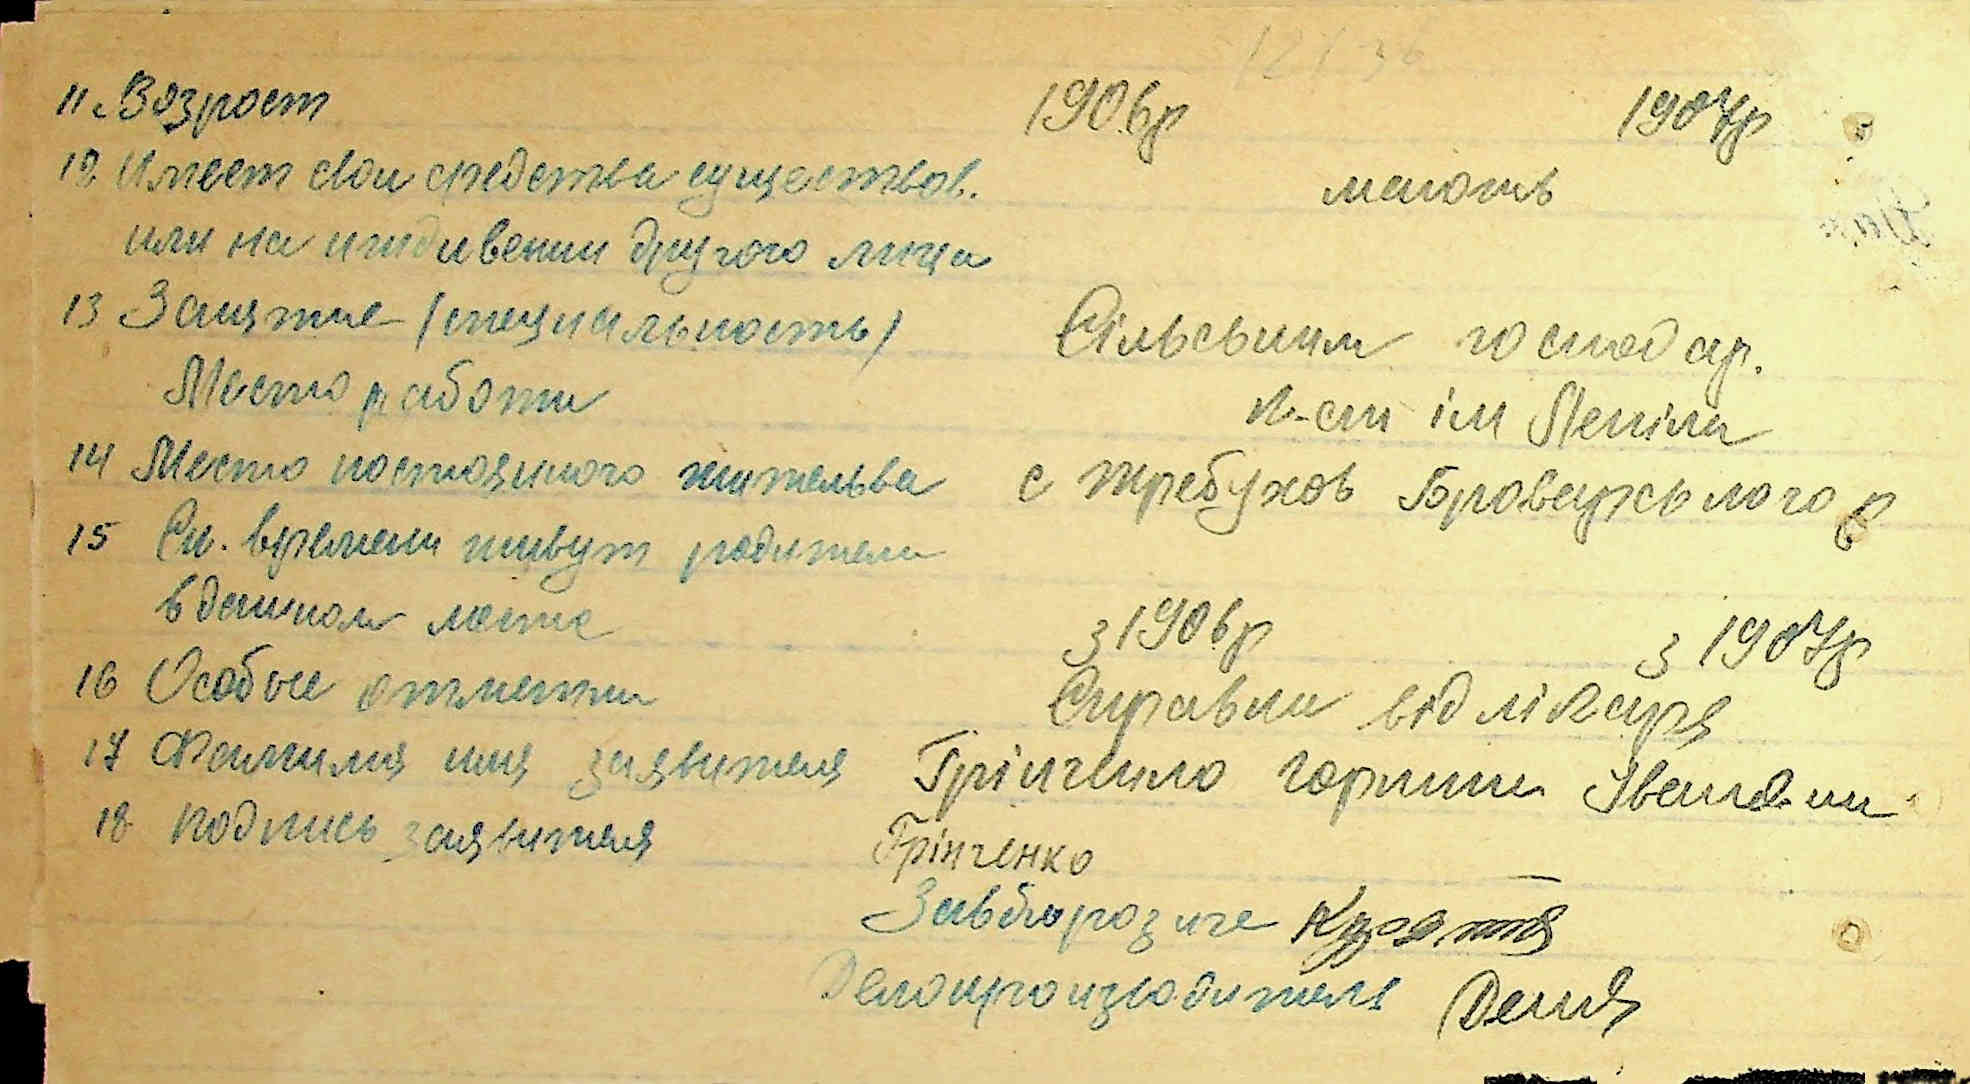 11. Возрост 1906р 1907р
12 Имеет свои средства существов. мають
или на иждивении другого лица
13 Занятие (специальность) Сільським господар.
Место работи к-сп ім Леніна
14 Место постоянного жительва с Требухов Броварського р
15 Ск. времени живут родители
в данном месте з 1906р з 1907р
16 Особые отметки Справка від лікаря
17 Фамилия имя заявителя Грінченко Іванов
18 Подпись заявителя Грінченко
Завбюро загс
Делопроизводитель